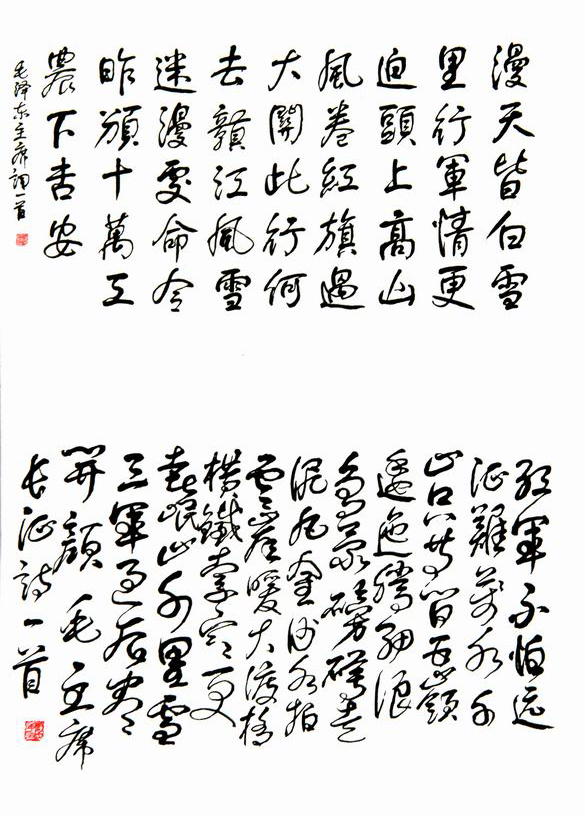 漫天皆白雪
里行軍情更
迫頭上高山
風卷紅旗過
大關此行何
去贛江風雪
迷漫處命令
昨頒十萬工
農下吉安
毛泽东主席詞一首
红軍不怕远
征難萬水千
山只等閒五嶺
逶迤騰細浪
烏蒙磅礴走
泥丸金沙水拍
雲崖暖大渡橋
橫鐵索寒更
喜岷山千里雪
三軍過后盡
開顏毛主席
长征詩一首